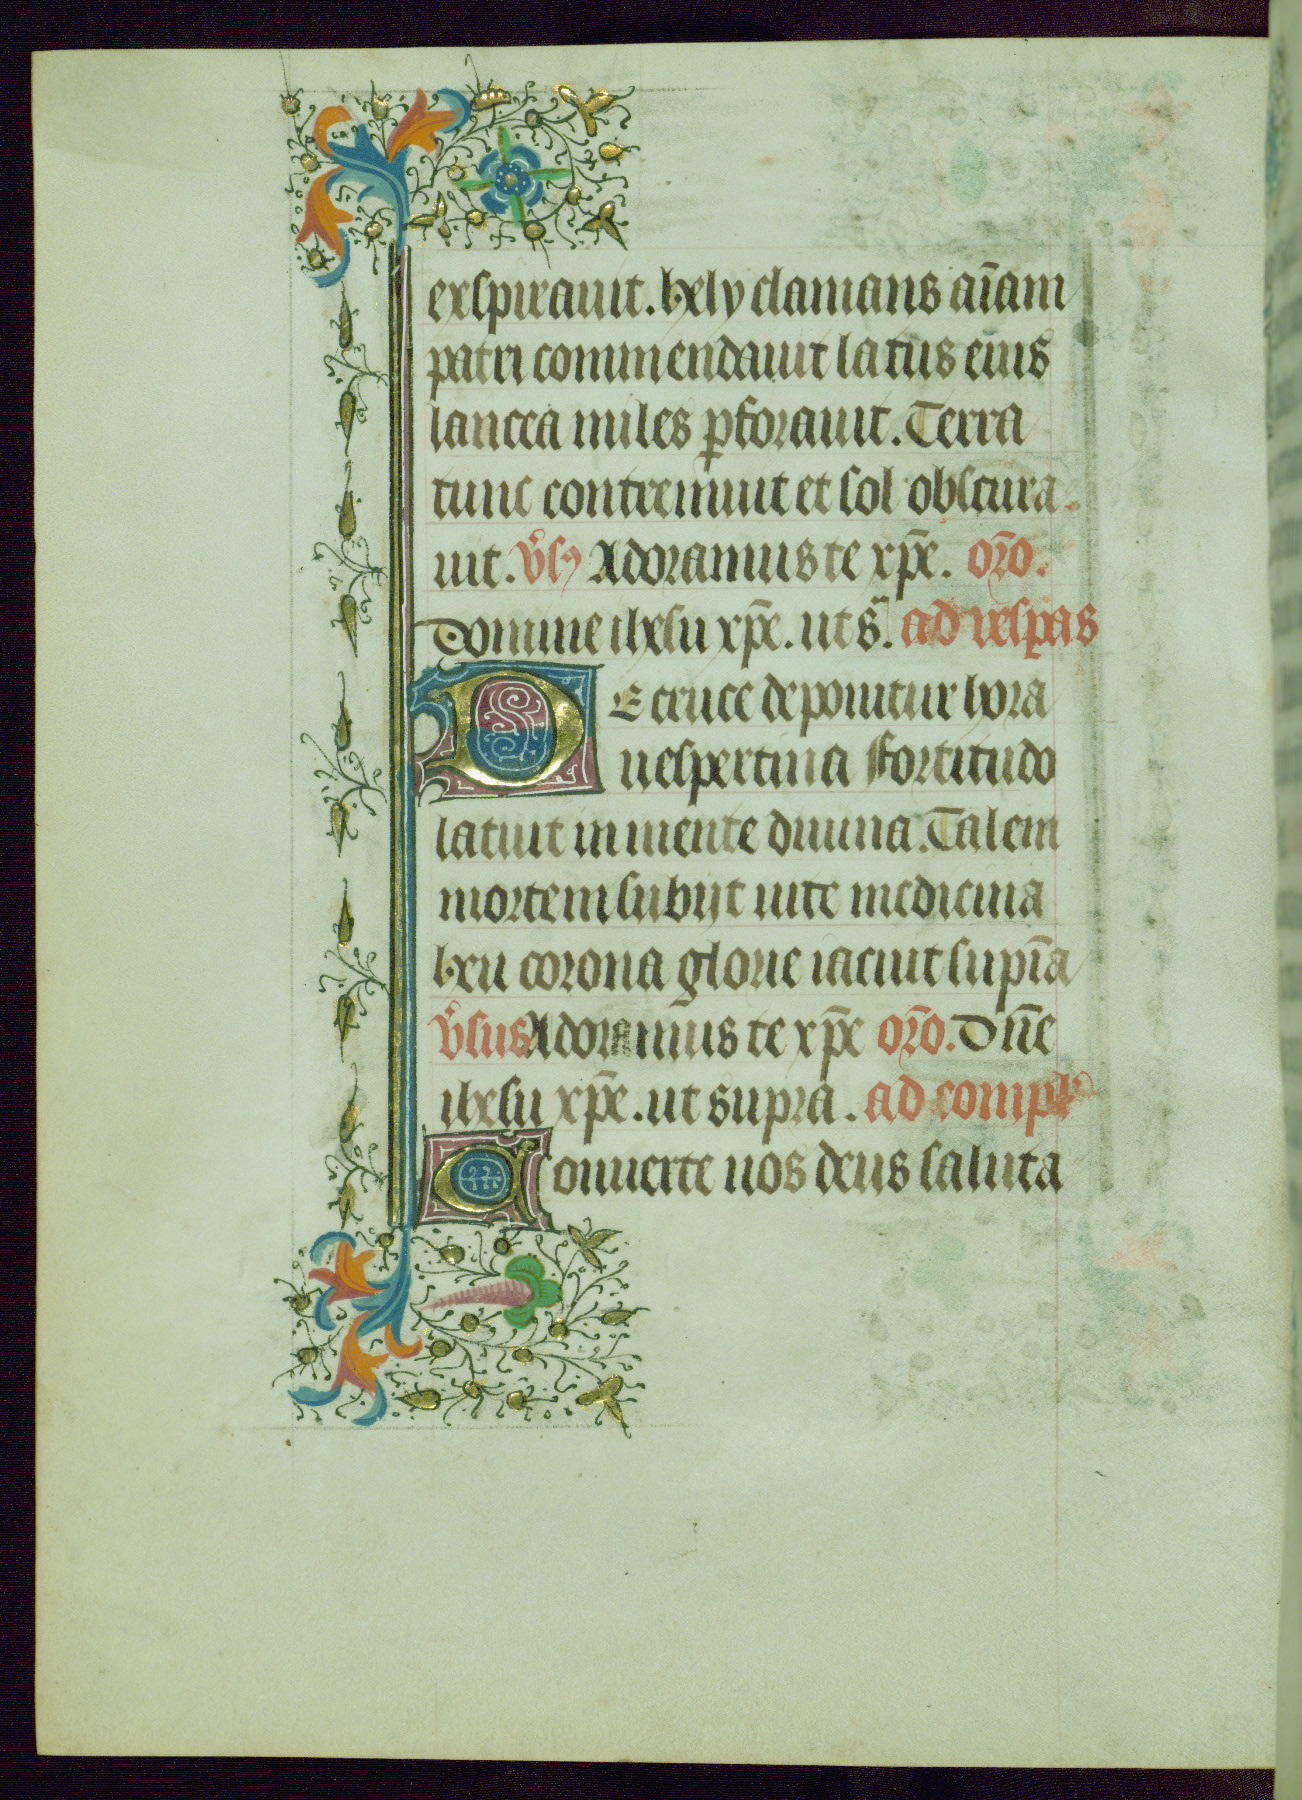 exspirauit. hely clamans aīam
patri commendauit latus eius
lancea miles ꝑforauit. Terra
tunc contremuit et sol obscura
uit. v̄sꝯ Adoramus te xp̄e. oro̅.
Domine ihesu xp̄e. ut sᵃ. ad vesꝑas
De cruce deponitur hora
uespertina Fortitudo
latuit in mente diuina. Talem
mortem subijt uite medicina
heu corona glorie iacuit supīa
v̄sus Adoramus te xp̄e oro̅. Dn̄e
ihesu xp̄e. ut supra. ad compl̄
Conuerte nos deus saluta